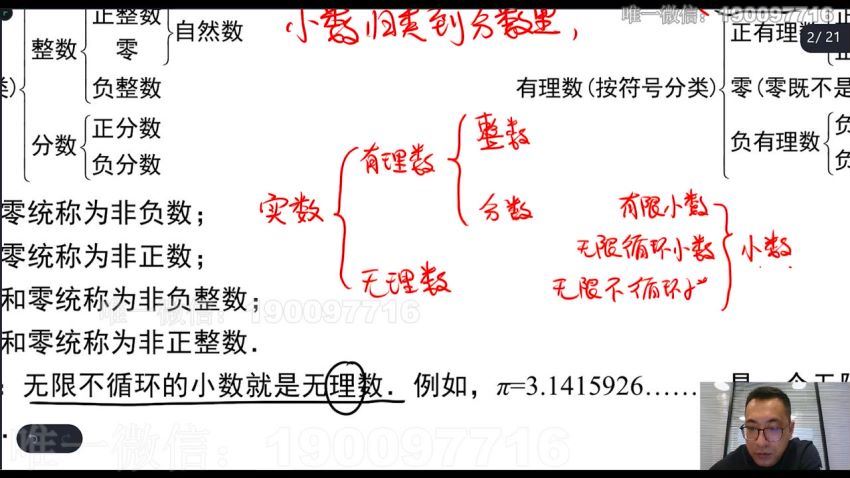 正整数
整数
零
自然数
负整数
类)
分数
正分数
负分数
小数归类到分数里,
唯一微信: 190097716
2/ 21
正有理数
有理数(按符号分类)
零(零既不是
负有理数
实数
有理数
整数
分数
无理数
有限小数
无限循环小数
无限不循环小〃
小数
零统称为非负数;
零统称为非正数;
和零统称为非负整数;
唯一微信: 190097716
和零统称为非正整数.
:无限不循环的小数就是无理数. 例如, π=3.1415926……
唯一微信: 190097716